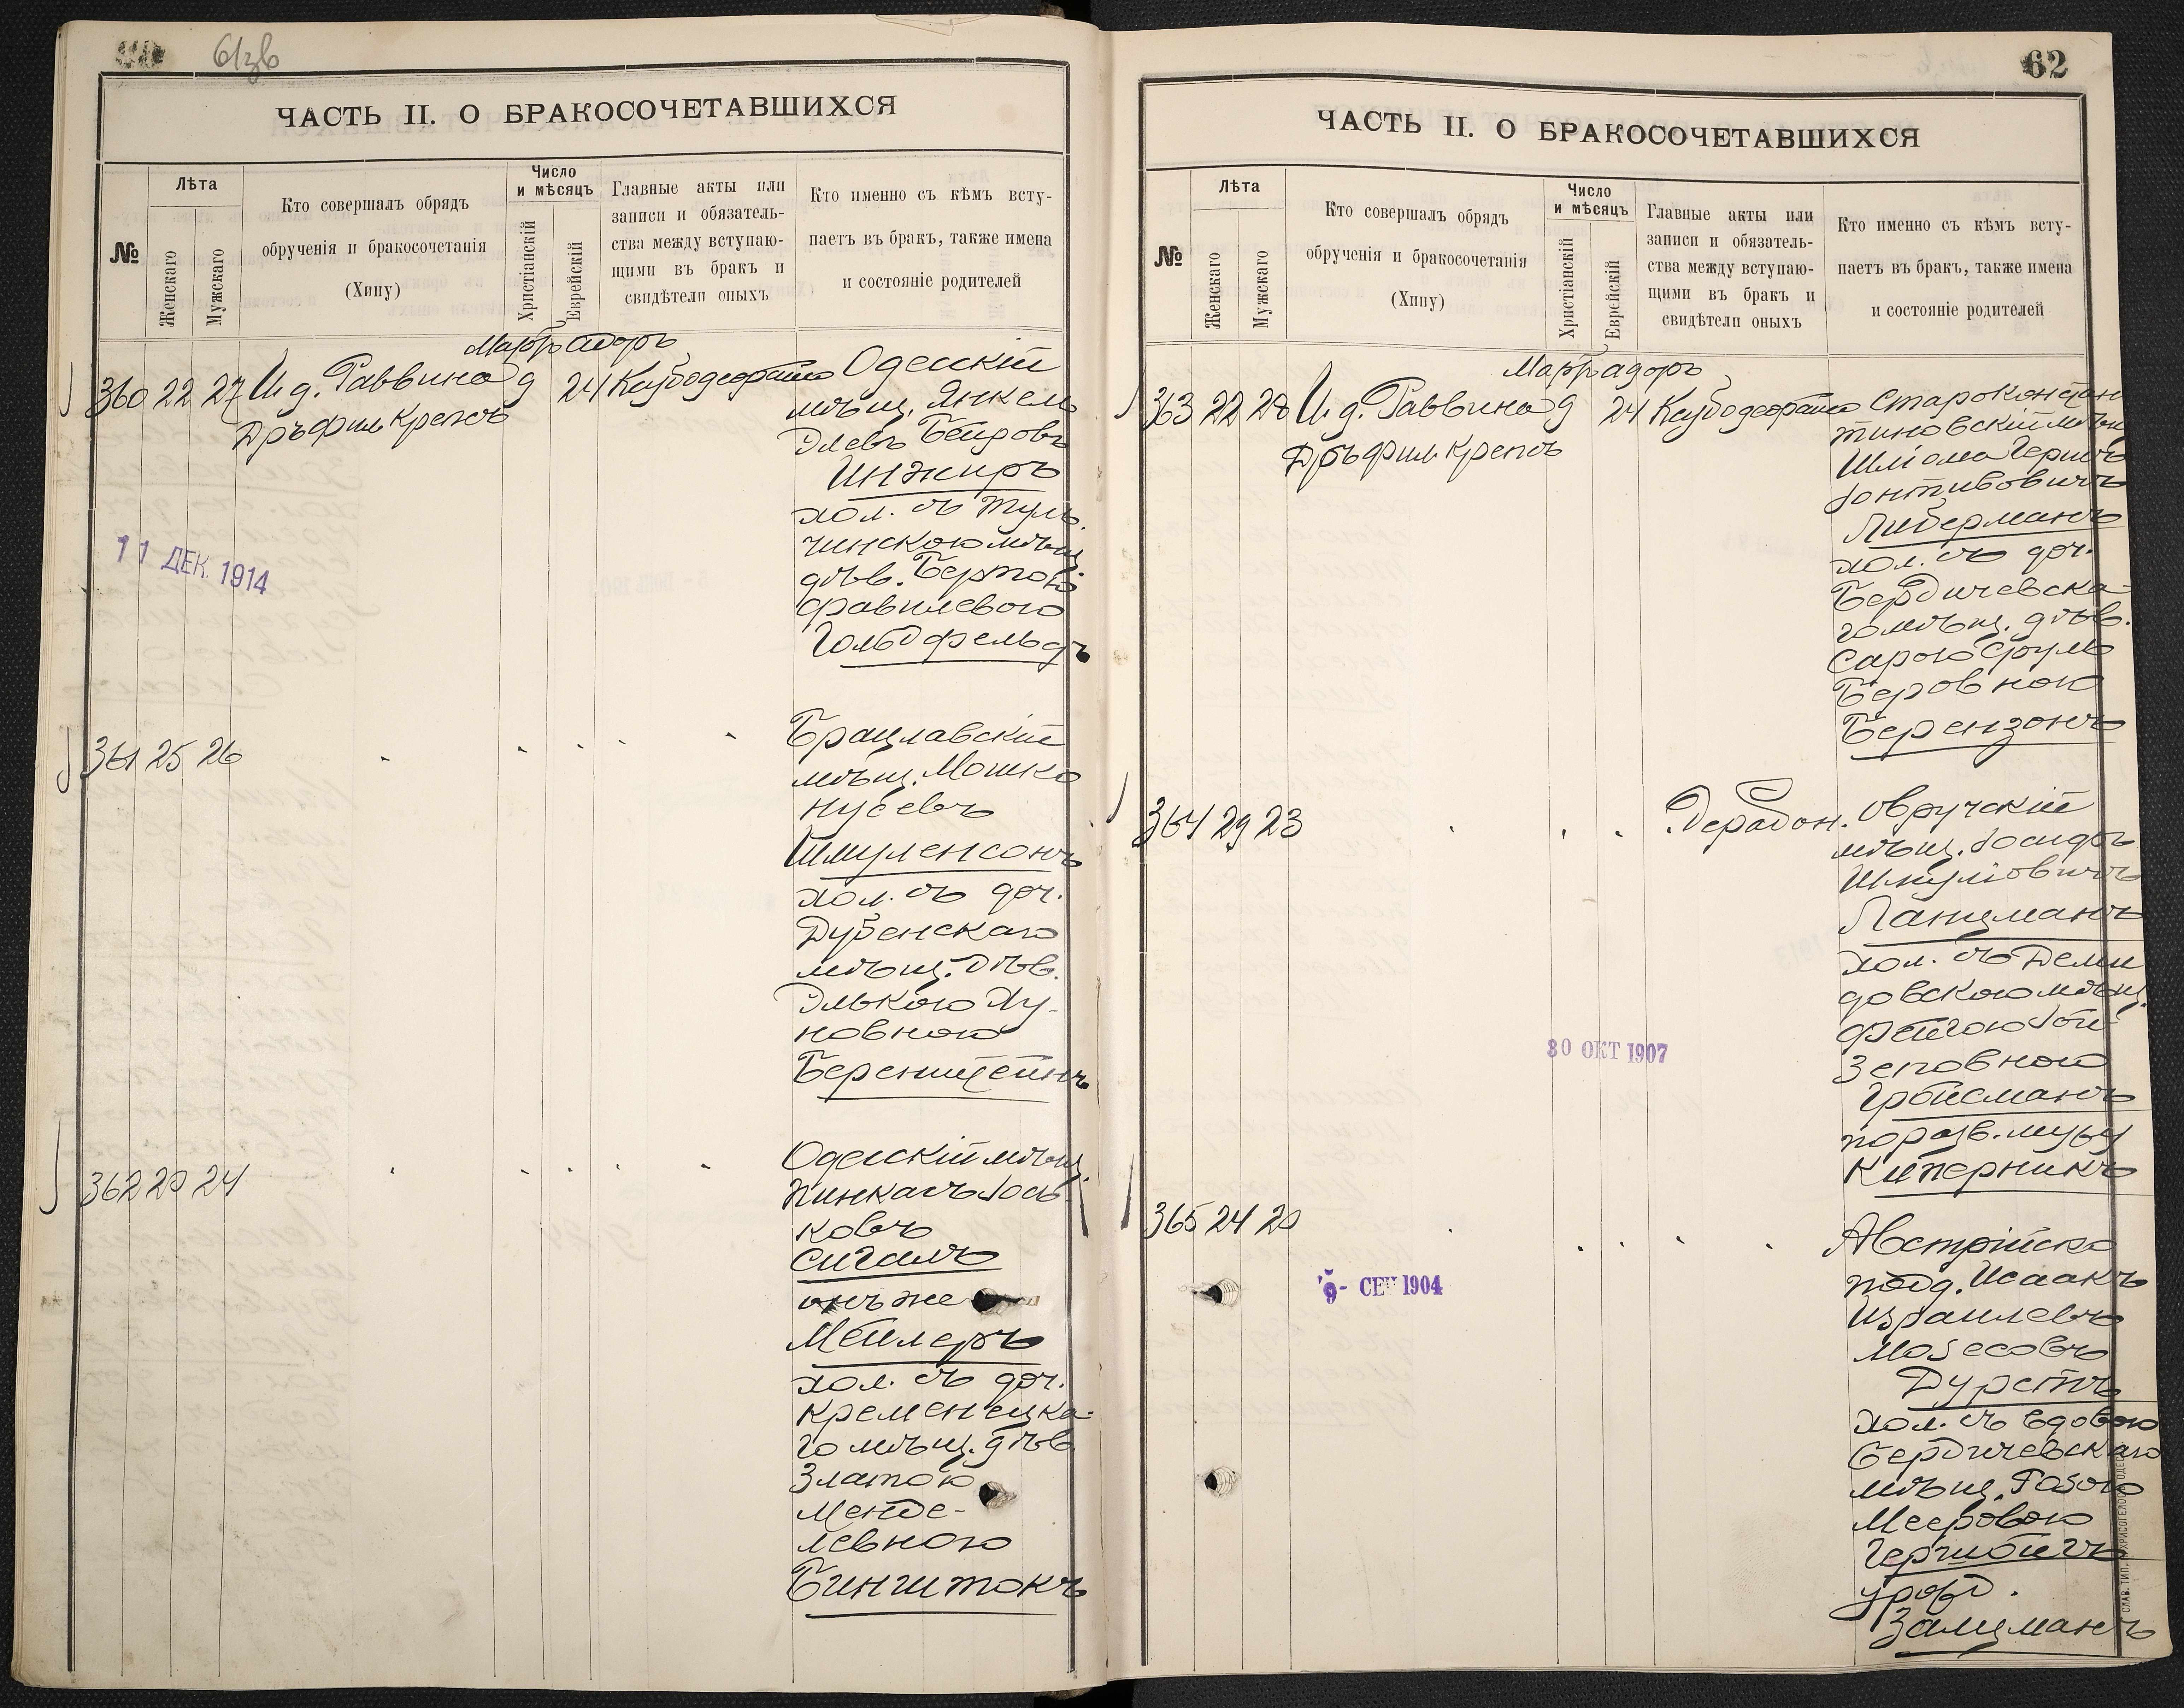 61зв
ЧАСТЬ II. О БРАКОСОЧЕТАВШИХСЯ
№
Лѣта
Женскаго
Мужскаго
Кто совершалъ обрядъ
обрученія и бракосочетанія
(Хипу)
Число
и мѣсяцъ
Христіанскій
Еврейскій
Главные акты или
записи и обязатель-
ства между вступаю-
щими въ бракъ и
свидѣтели оныхъ
Кто именно съ кѣмъ всту-
паетъ въ бракъ, также имена
и состояніе родителей
Мартъ Адоръ
360 22 27 И. д. Раввина 9 24
Дръ Фил. Крепсъ
Одесскій
мѣщ. Янкель
Элевъ Беировъ
Инжиръ
хол. съ Туль-
чинскою мѣщ.
дѣв. Бертою
Фравилевою
Гольдфельдъ
11 ДЕК. 1914
361 25 26
Брацлавскій
мѣщ. Мошко
Нусевъ
Шмуленсонъ
хол. съ доч.
Дубенскаго
мѣщ. дѣв.
Элькою Ху-
новною
Беренштейнъ
362 20 24
Одесскій мѣщ.
Пинкасъ Іось-
ковъ
Сигалъ
онъ же
Мейлеръ
хол. съ доч.
Кременецка-
го мѣщ. дѣв.
Златою
Менде-
левною
Бинштокъ
62
ЧАСТЬ II. О БРАКОСОЧЕТАВШИХСЯ
№
Лѣта
Женскаго
Мужскаго
Кто совершалъ обрядъ
обрученія и бракосочетанія
(Хипу)
Число
и мѣсяцъ
Христіанскій
Еврейскій
Главные акты или
записи и обязатель-
ства между вступаю-
щими въ бракъ и
свидѣтели оныхъ
Кто именно съ кѣмъ всту-
паетъ въ бракъ, также имена
и состояніе родителей
Мартъ Адоръ
363 22 28 И. д. Раввина 9 24
Дръ Фил. Крепсъ
Староконстан
тиновскій мѣщ
Шліома Герш
Либерманъ
хол. съ доч.
Бердичевска-
го мѣщ. дѣв.
Сарою Сруль
Беровною
Берензонъ
364 29 23
Овручскій
мѣщ. Іосифъ
Шмуліовичъ
Ланцманъ
хол. съ Деми
довскою мѣщ.
Фейгою Іои-
зеповною
Гройсманъ
по разв. мужу
Киперникъ
30 ОКТ 1907
365 24 28
Австрійско
подд. Исаакъ
Израилевъ
Мозесовъ
Дурстъ
хол. съ вдовою
Бердичевскаго
мѣщ. Розою
Мееровою
урожд.
Залцманъ
9- СЕН 1904